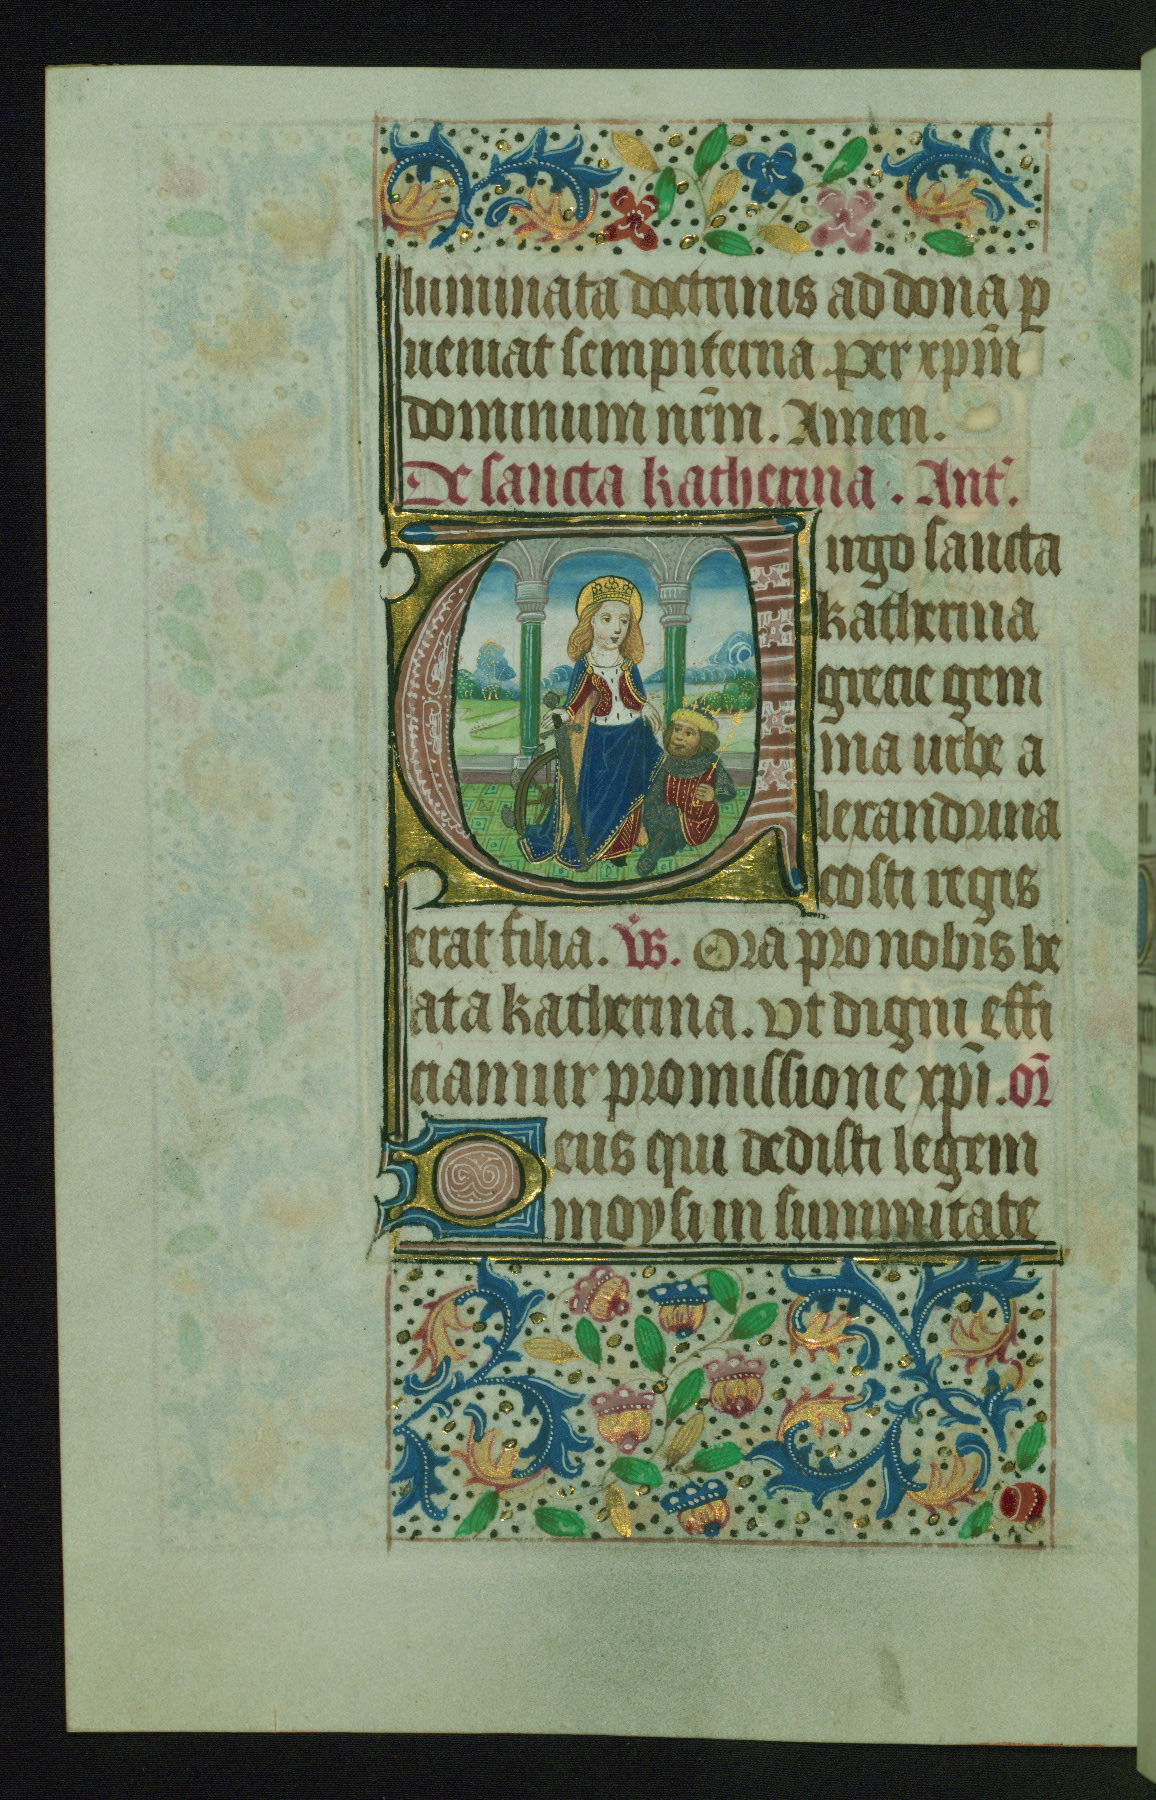 luminata doctrinis ad dona ꝑ
ueniat sempiterna per xp̄m
dominum nr̄m. Amen.
De sancta katherina. Ant̄.
Virgo sancta
katherina
grecie gem
ma urbe a
lexandrina
costi regis
erat filia. V̊s. Ora pro nobis be
ata katherina. Vt digni effi
ciamur promissione xp̄i. or̄
Deus qui dedisti legem
moysi in summitate